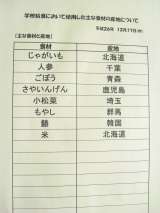 学校給食において使用した主な食材の産地について
平成26年 12月17日(水)
(主な食材と産地)
食材 産地
じゃがいも 北海道
人参 千葉
ごぼう 青森
さやいんげん 鹿児島
小松菜 埼玉
もやし 群馬
韓国
米 北海道